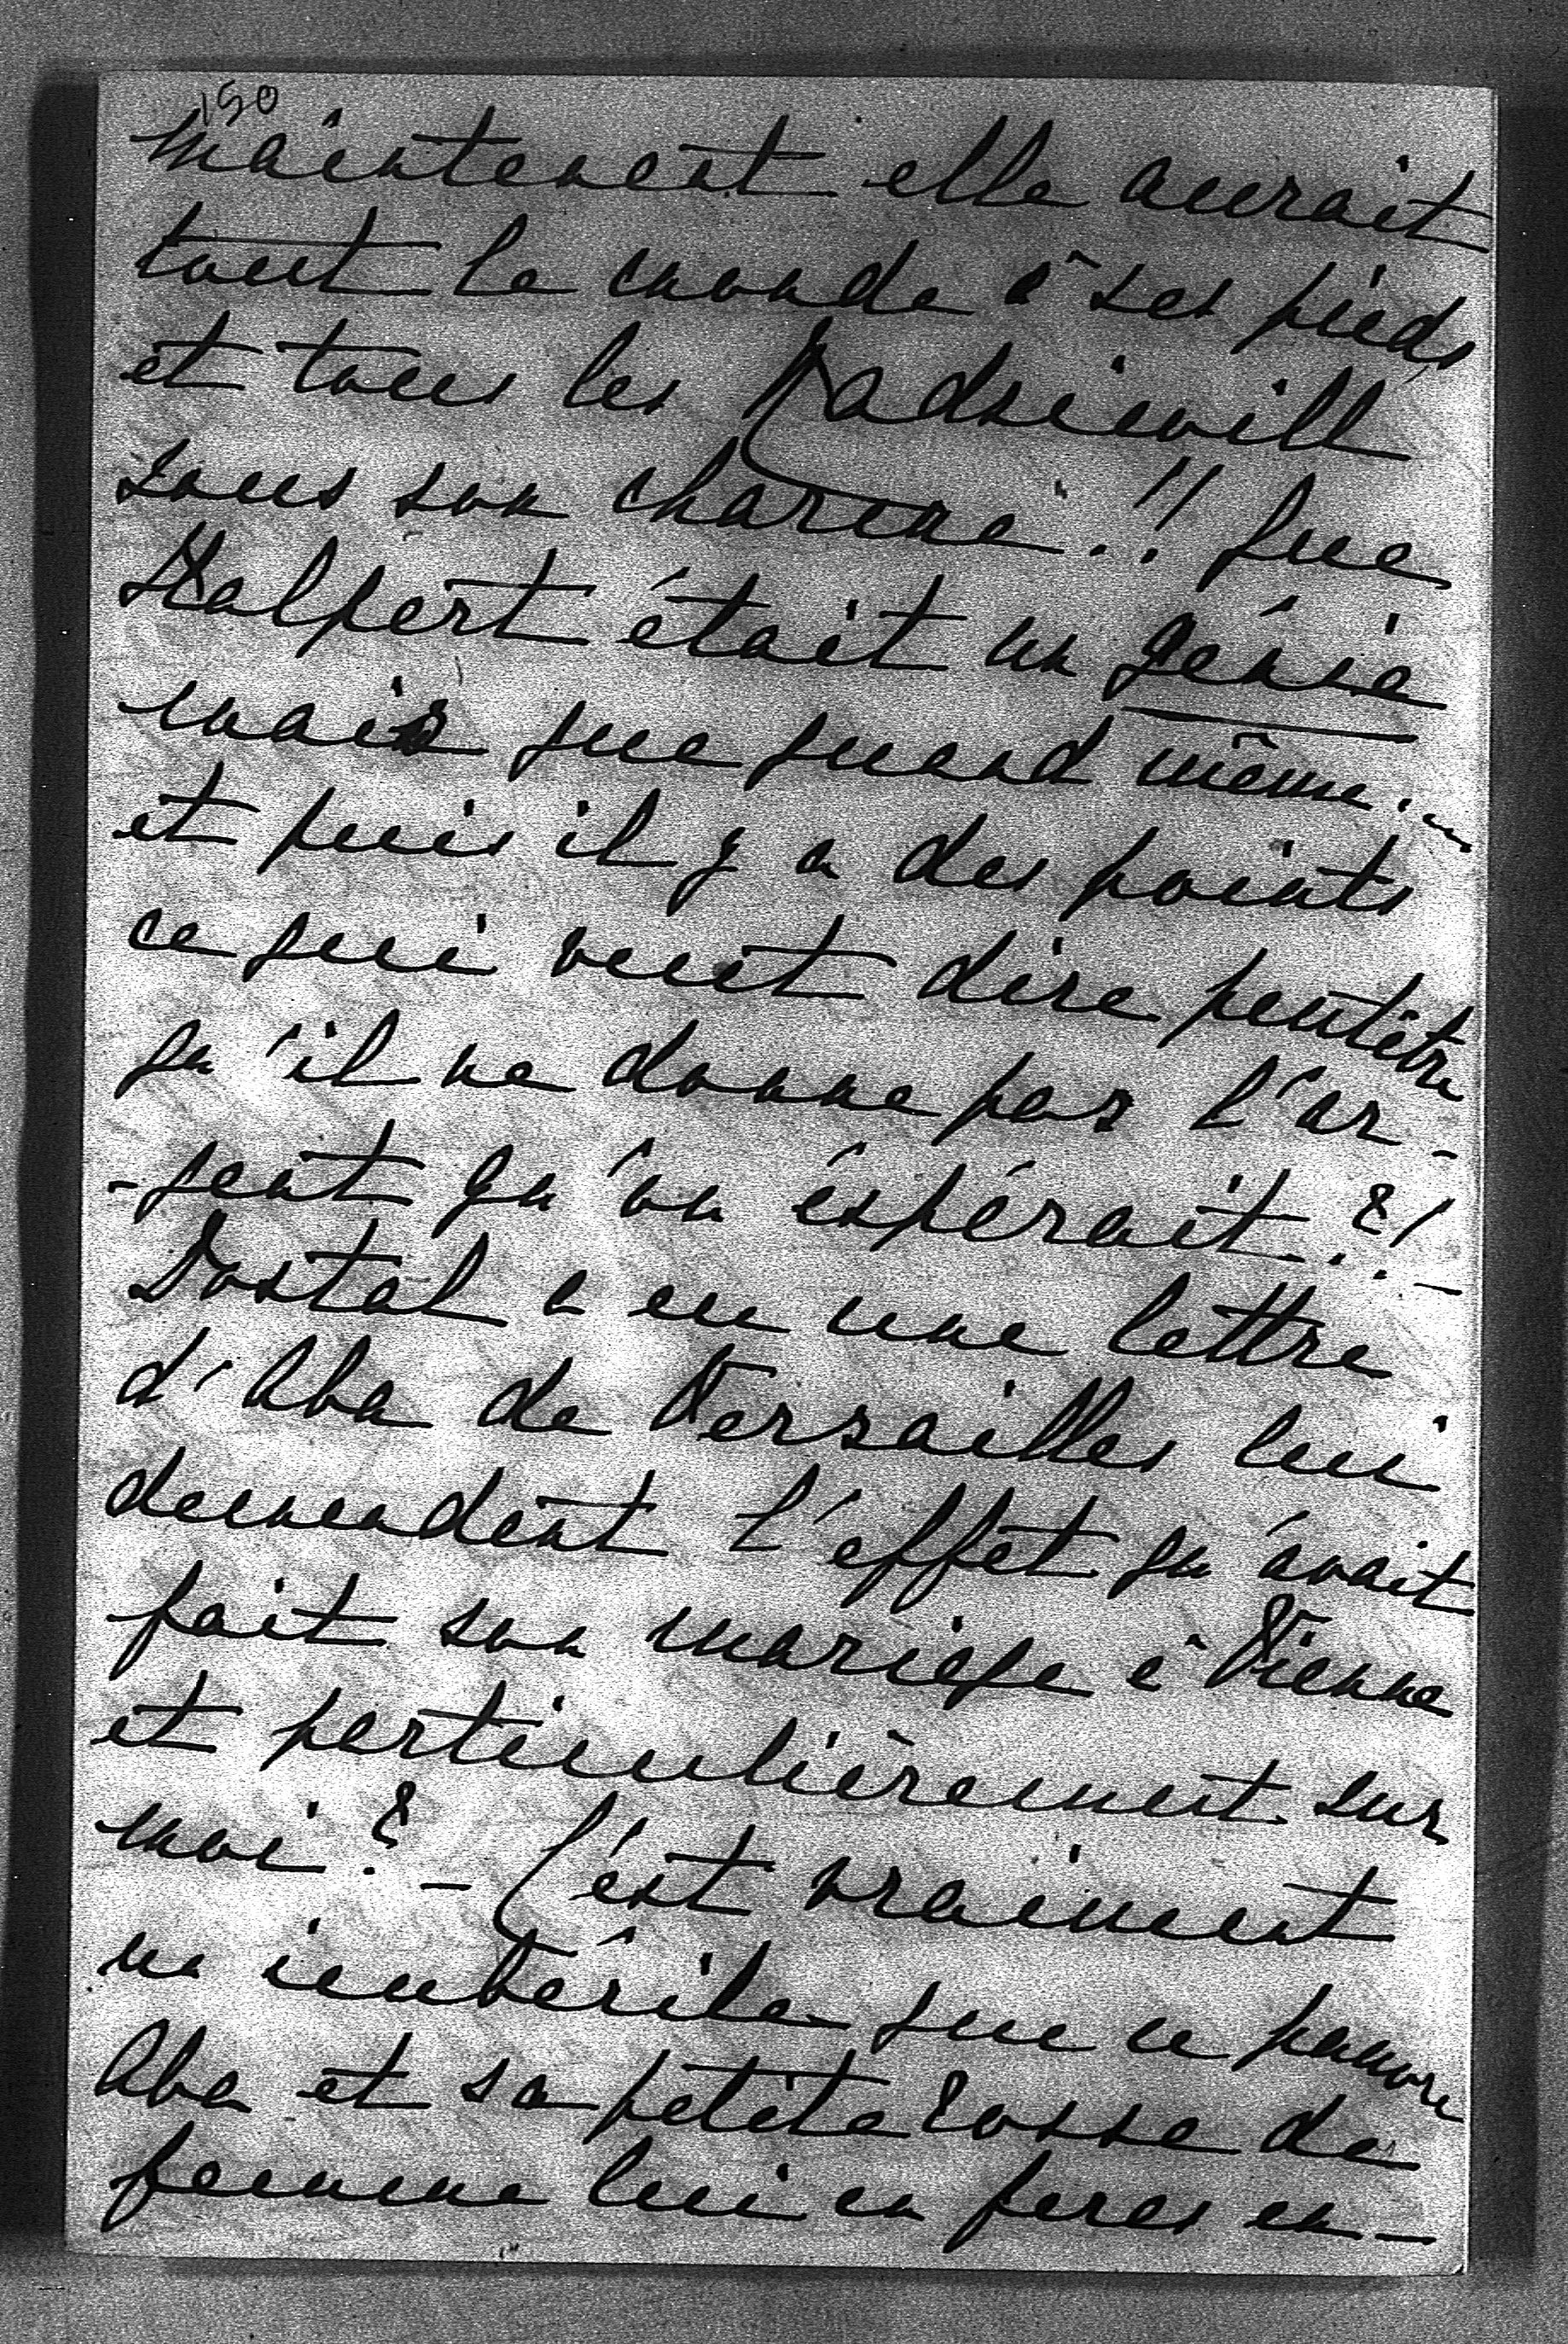 150
maintenant elle aurait
tout le monde à ses pieds
et tous les Radziwill
sous son charme!! que
Halpert était un génie
mais que quand même.
et puis il y a des points
ce qui veut dire peutêtre
qu'il ne donne pas l'ar-
-gent qu'on éspérait?! –
Dostal a eu une lettre
d'Aba de Versailles lui
demandant l'effet qu'avait
fait son mariage à Vienne
et particulièrement sur
moi? – C'est vraiment
un imbécile que ce pauvre
Aba et sa petite rosse de
femme lui en feras en-